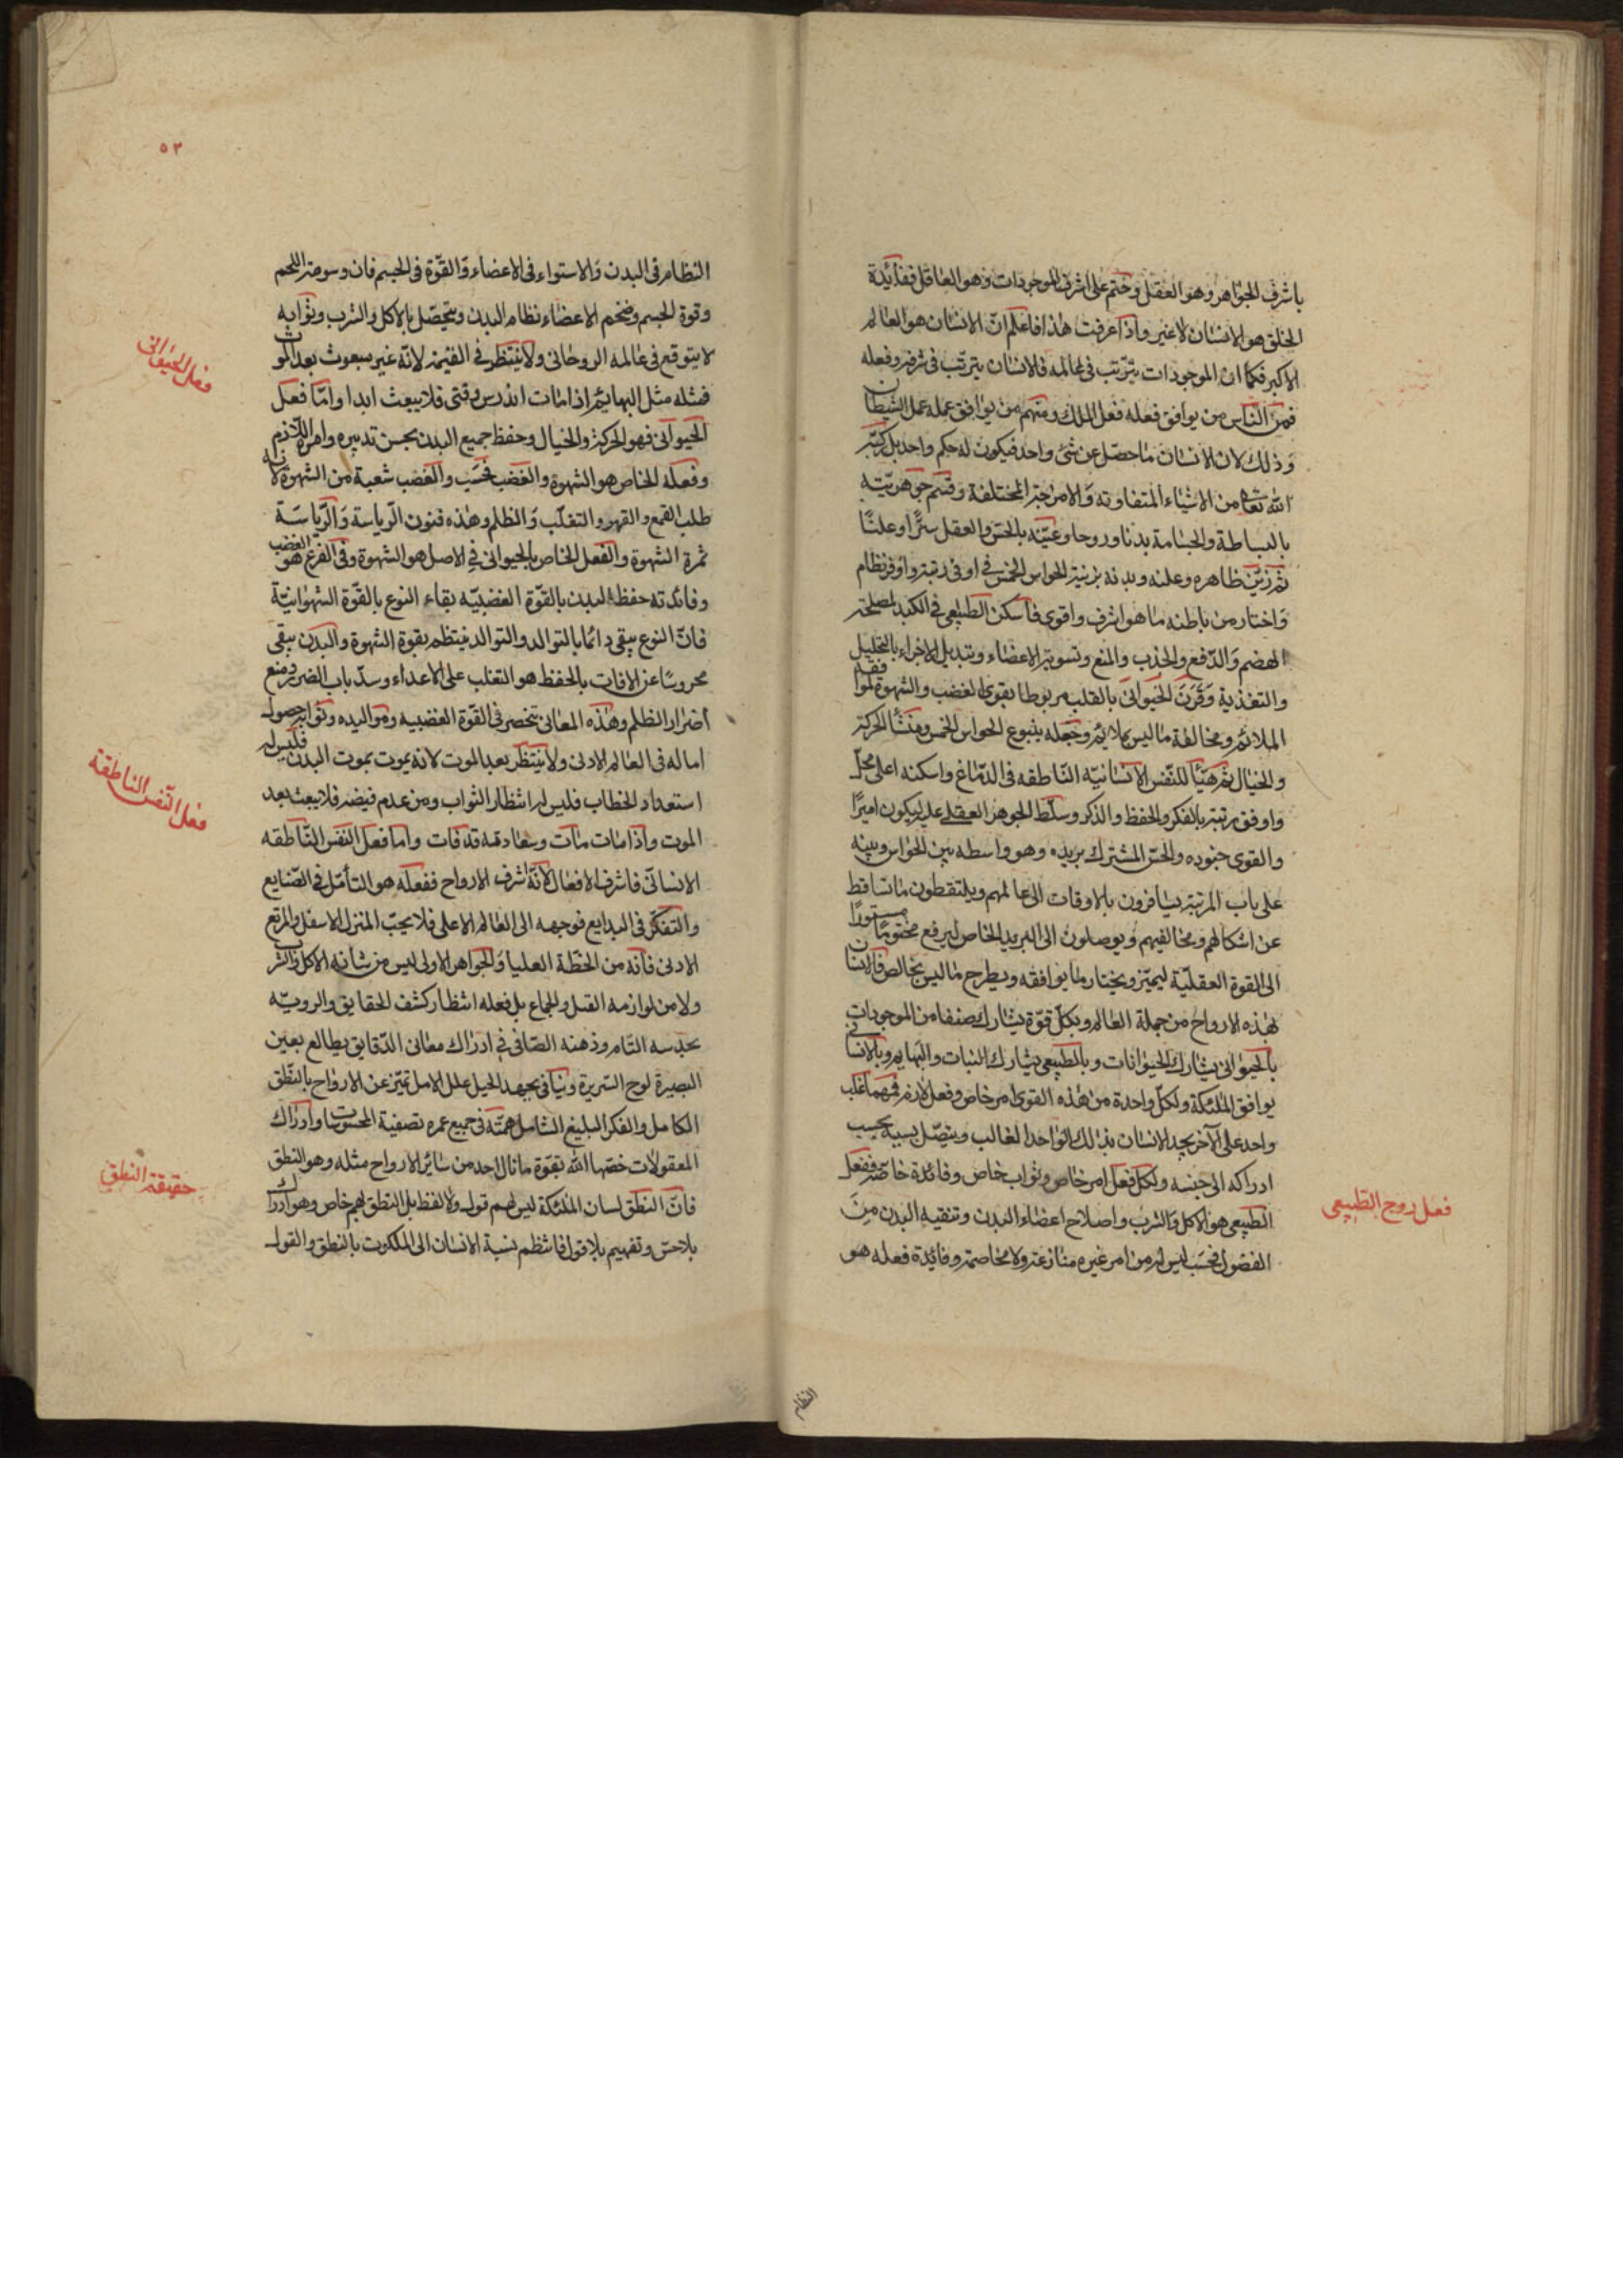 باشرف الجواهر وهو العقل وختم على اشرف الموجودات وهو العاقل ففائدة
الخلق هو الانسان لا غير واذا عرفت هذا فاعلم انّ الانسان هو العالم
الاكبر فكما ان الموجودات يترتب في عالمه فالانسان يترتب في شرفه وفعله
فمن الناس من يوافق فعله فعل الملك ومنهم من يوافق عمله عمل الشيطان
وذلك لان الانسان ما حصل عن شئ واحد فيكون له حكم واحد بل ركبه
الله تعا من الاشياء المتفاوته والامزجة المختلفة وقسم جوهريته
بالبساطة والجسامة بدنا وروحا وعينه بالحس والعقل سرًّا وعلنًا
ثم زيّن ظاهره وعلنه وبدنه بزينة الحواس الخمس في اوفى رتبة واوفر نظام
واختار من باطنه ما هو اشرف واقوى فاسكن الطبيعي في الكبد لمصلحة
الهضم والدفع والجذب والمنع وتسوية الاعضاء وتبديل الاجزاء بالتحليل
والتغذية وقرن الحيوانى بالقلب مربوطا بقوى الغضب والشهوة لموافقة
الملائم ومخالفة ما ليس بملائم وجعله ينبوع الحواس الخمس ومنشأ الحركة
والخيال ثم هيّأ للنفس الانسانيّه النّاطقه في الدماغ واسكنه اعلى محل
واوفق رتبة بالفكر والحفظ والذكر وسلّط الجوهر العقلي عليه ليكون اميرًا
والقوى جنوده والحس المشترك بريده وهو واسطه بين الحواس وبينه
على باب المرتبة يسافرون بالاوقات الى عالمهم ويلتقطون ما تساقط
عن اشكالهم ومخالفيهم ويوصلون الى البريد الخاص ليرفع مختومًا مستورًا
الى القوة العقليّة ليميز ويختار ما يوافقه ويطرح ما ليس بخالص فالانسان
بهذه الارواح من جملة العالم وبكل قوّة يشارك صنفا من الموجودات
بالحيوانى يشارك الحيوانات وبالطبيعي يشارك النبات والبهايم وبالانسانى
يوافق الملئكة ولكل واحدة من هذه القوى امر خاص وفعل لازم فمهما غلب
واحد على الآخر يجد الانسان بذلك الواحد الغالب ويتصل نسبه بحسب
ادراكه الى جنسه ولكل فعل امر خاص وثواب خاص وفائدة خاصة ففعل
الطبيعي هو الاكل والشرب واصلاح اعضاء البدن وتنقيه البدن من
الفضول فحسب ليس له من امر غيره منازعة ولا مخاصمة وفائدة فعله هو
فعل روح الطبيعي
النظام
٥٣
النظام في البدن والاستواء في الاعضاء والقوّة في الجسم فان وسومة اللحم
وقوة الجسم وضخم الاعضاء نظام البدن ويتحصّل بالاكل والشرب وثوابه
لا يتوقع في عالمه الروحانى ولا ينتظر في القيمة لانه غير مبعوث بعد الموت
فمثله مثل البهائم اذا مات اندرس وفنى فلا يبعث ابدا وامّا فعل
الحيوانى فهو الحركة والخيال وحفظ جميع البدن بحسن تدبيره وامره اللازم
وفعله الخاص هو الشهوة والغضب فحسب والغضب شعبة من الشهوة لانه
طلب القمع والقهر والتغلّب والظلم وهذه فنون الرياسة والرياسة
ثمرة الشهوة والفعل الخاص بالحيوانى في الاصل هو الشهوة وفي الفرع هو الغضب
وفائدته حفظ البدن بالقوّة الغضبيّه بقاء النوع بالقوّة الشهوانيّة
فانّ النوع يبقى دائما بالتوالد والتوالد ينتظم بقوة الشهوة والبدن يبقى
محروسًا عن الافات بالحفظ هو التغلب على الاعداء وسدّ باب الضرر ومنع
اضرار الظلم وهذه المعانى تنحصر في القوّة الغضبيه ومواليده وثوابه حصول
اماله في العالم الادنى ولا ينتظر بعد الموت لانه يموت بموت البدن فليس له
استعداد الخطاب فليس له انتظار الثواب ومن عدم فيضه فلا يبعث بعد
الموت واذا مات مات وسعادته قد فات واما فعل النفس النّاطقه
الانسانىّ فاشرف الافعال لانّه اشرف الارواح ففعله هو التأمّل في الصّنايع
والتفكر في البدايع فوجهه الى العالم الاعلى فلا يحبّ المنزل الاسفل والمرتع
الادنى فانّه من الخطّة العليا والجواهر الاولى ليس من شانه الاكل والشرب
ولا من لوازمه القبل والجماع بل فعله انتظار كشف الحقايق والرويّه
بحدسه التام وذهنه الصّافى في ادراك معانى الدّقايق يطالع بعين
البصيرة لوح السّريرة وينافى بجهد الحيل علل الامل تميّز عن الارواح بالنّطق
الكامل والفكر البليغ الشامل همّته في جميع عمره تصفية المحسوسات وادراك
المعقولات خصّها الله بقوّة ما نال احد من سائر الارواح مثله وهو النطق
فانّ النطق لسان الملئكة ليس لهم قول ولا لفظ بل النطق لهم خاص وهو ادراك
بلا حسّ وتفهيم بلا قول فانتظم نسبة الانسان الى الملكوت بالنطق والقول
فعل الحيوانى
فعل النّفس الناطقة
حقيقة النطق